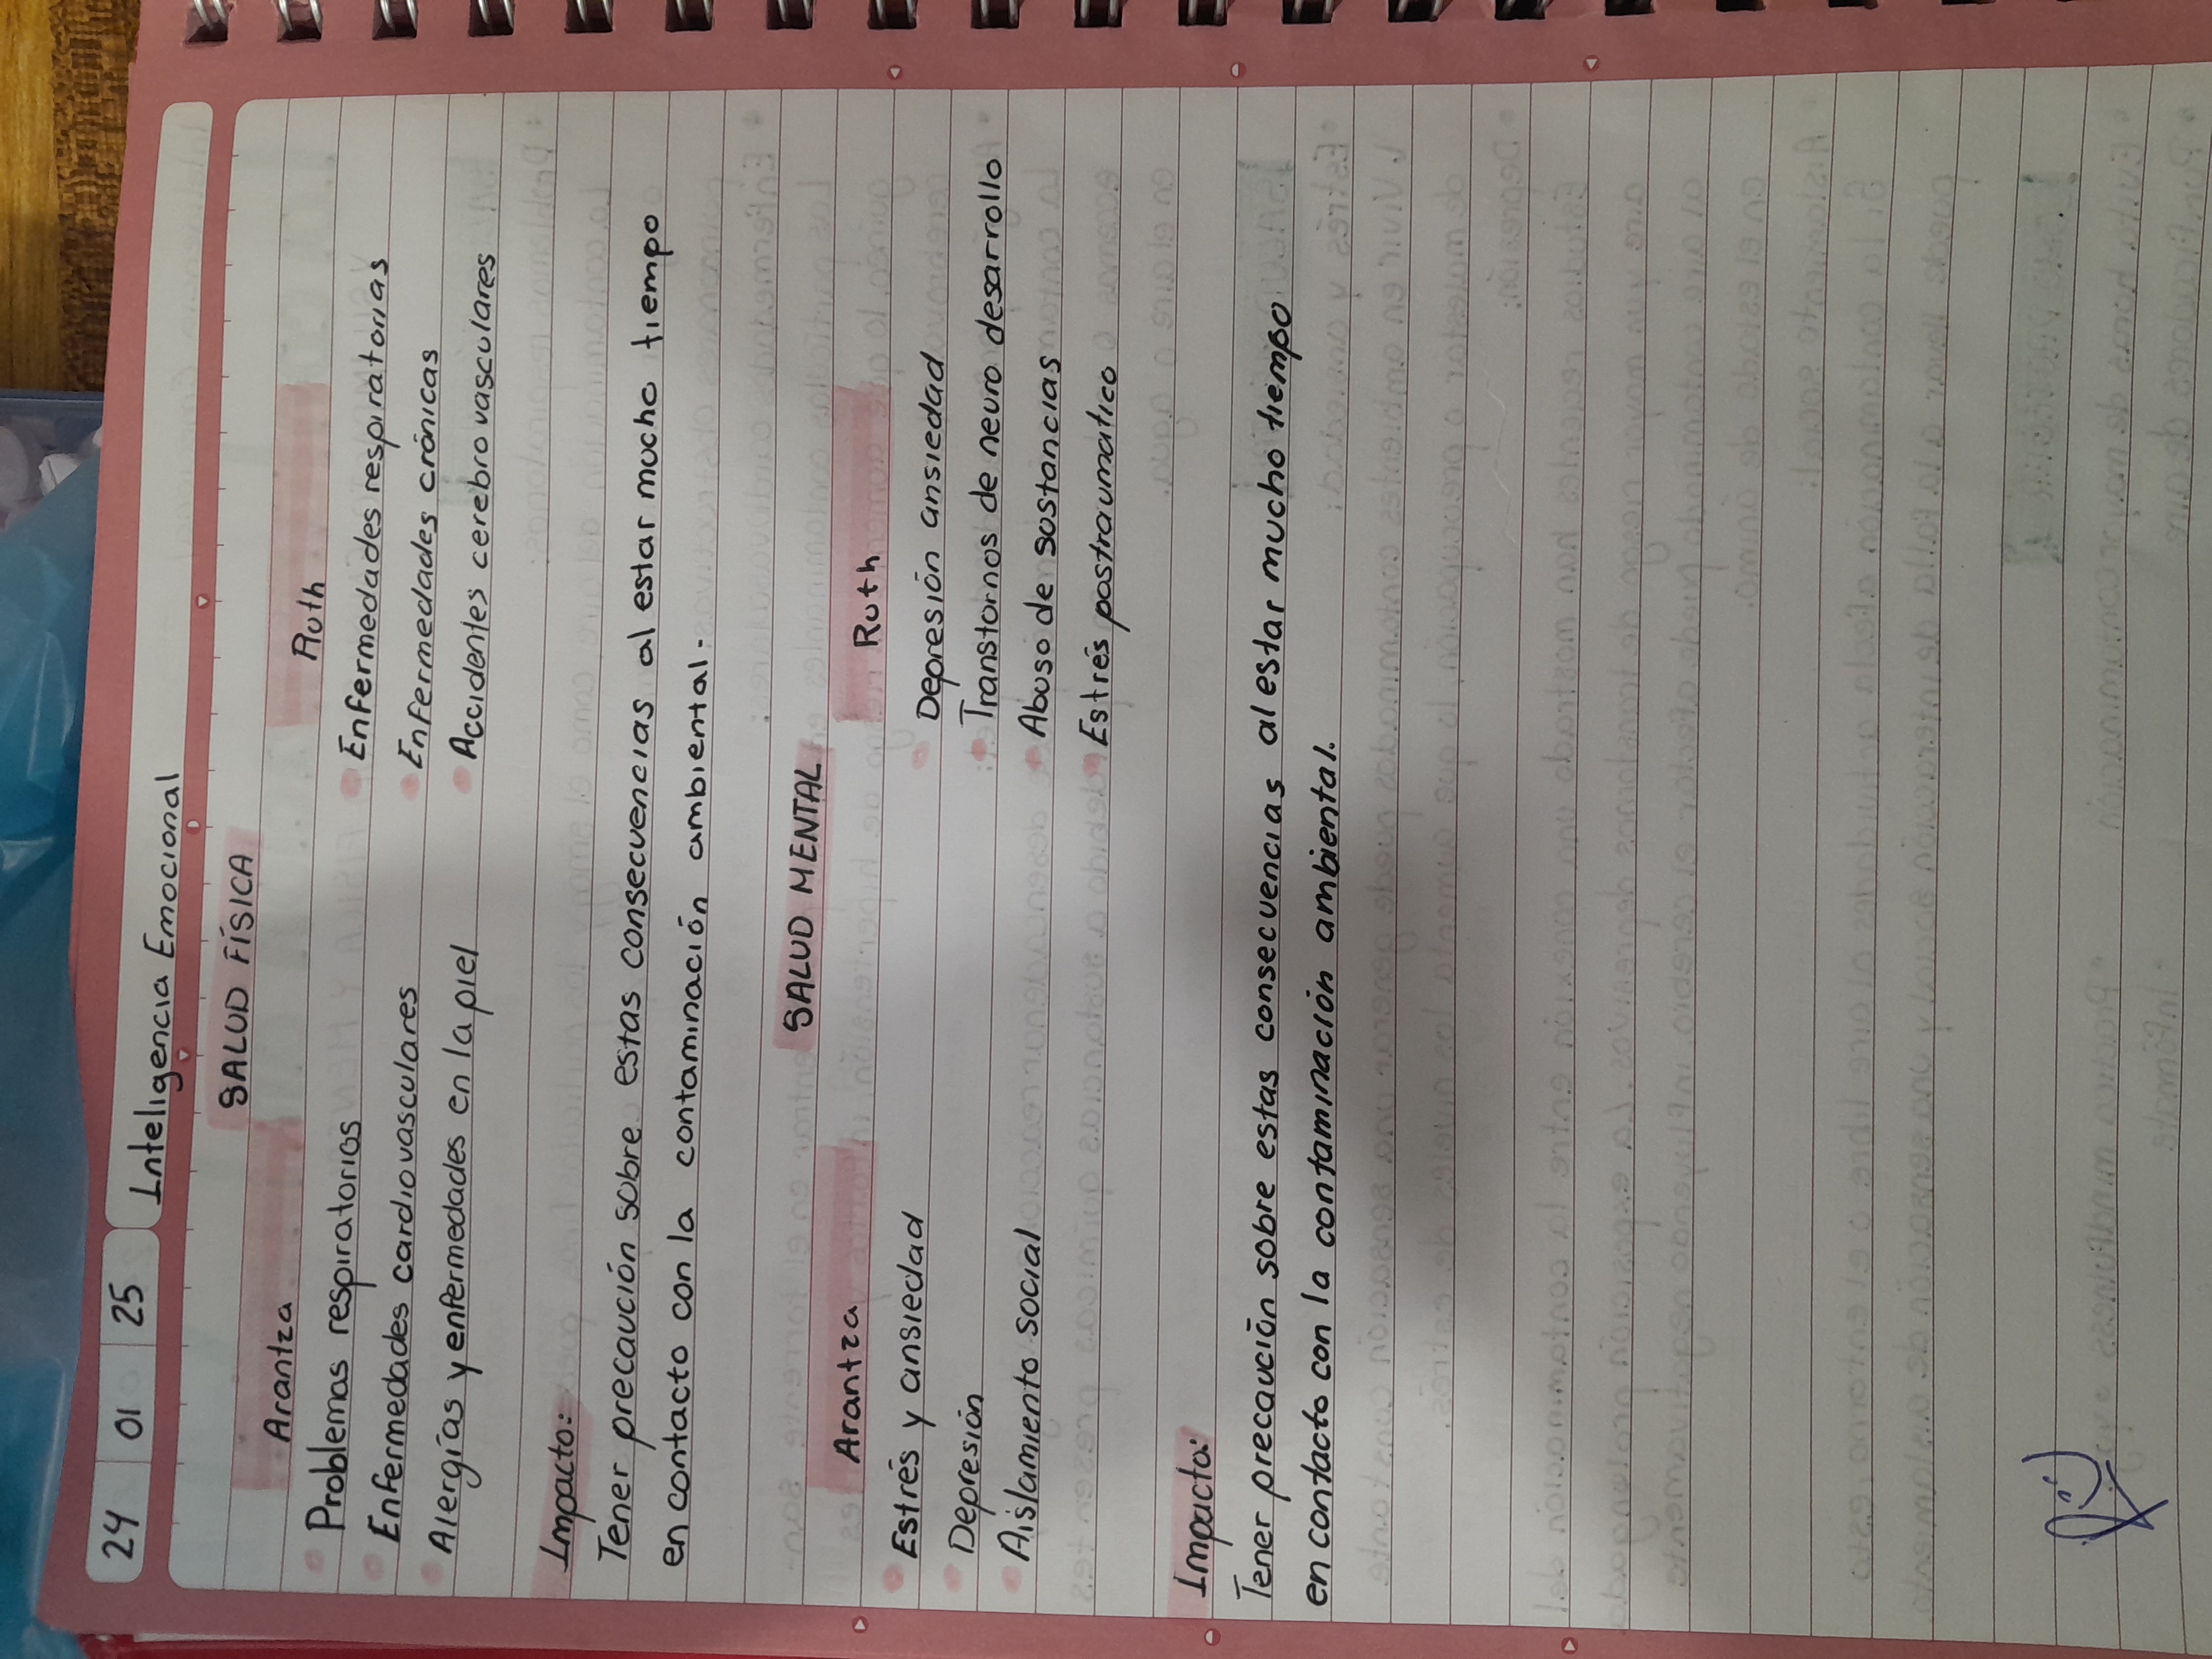 24 01 25 Inteligencia Emocional
SALUD FÍSICA
Arantza Ruth
Problemas respiratorios Enfermedades respiratorias
Enfermedades cardiovasculares Enfermedades crónicas
Alergías y enfermedades en la piel Accidentes cerebro vasculares
Impacto:
Tener precaución sobre estas consecuencias al estar mucho tiempo
en contacto con la contaminación ambiental.
SALUD MENTAL
Arantza Ruth
Estrés y ansiedad Depresión ansiedad
Depresión Transtornos de neuro desarrollo
Aislamiento social Abuso de sustancias
Estrés postraumatico
Impacto:
Tener precaución sobre estas consecuencias al estar mucho tiempo
en contacto con la contaminación ambiental.